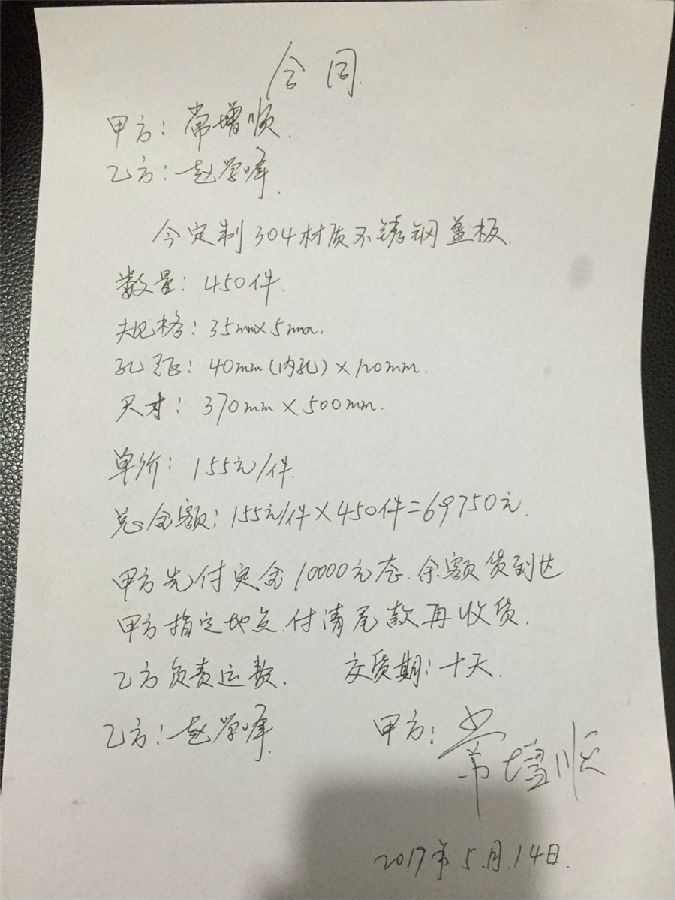 合同
甲方：常增顺
乙方：赵学峰
今定制304材质不锈钢盖板
数量：450件
规格：35mm×5mm.
孔距：40mm(内孔)×120mm.
尺寸：370mm×500mm.
单价：155元/件
总金额：155元/件×450件=69750元.
甲方先付定金10000元. 余额货到达
甲方指定地点.付清尾款再收货.
乙方负责运费. 交货期：十天.
乙方：赵学峰 甲方：常增顺
2017年5月14日.